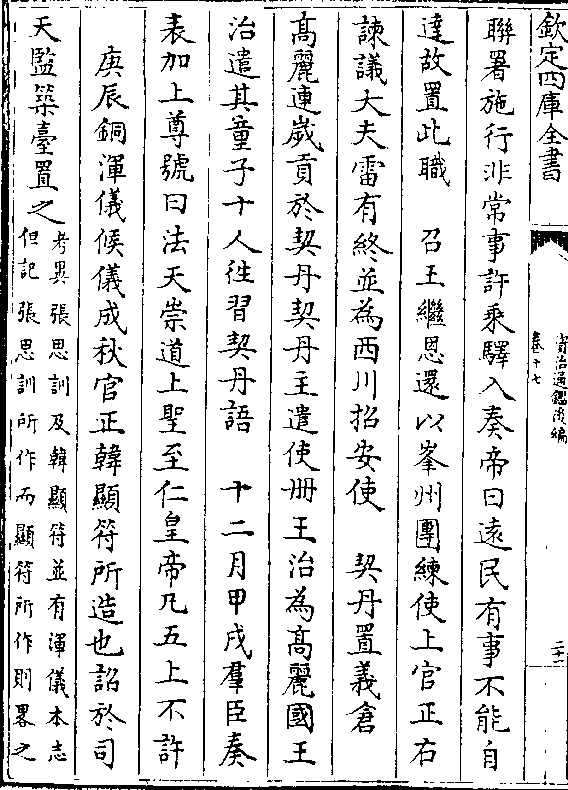 欽定四庫全書
資治通鑑後編
卷十七
二十一
聯署施行非常事許乗驛入奏帝曰逺民有事不能自
達故置此職　召王繼恩還以峯州團練使上官正右
諫議大夫雷有終並為西川招安使　契丹置義倉
髙麗連嵗貢於契丹契丹主遣使册王治為髙麗國王
治遣其童子十人徃習契丹語　十二月甲戌羣臣奏
表加上尊號曰法天崇道上聖至仁皇帝凡五上不許
庚辰銅渾儀候儀成秋官正韓顯符所造也詔於司
天監築臺置之考異張思訓及韓顯符並有渾儀本志
但記張思訓所作而顯符所作則畧之